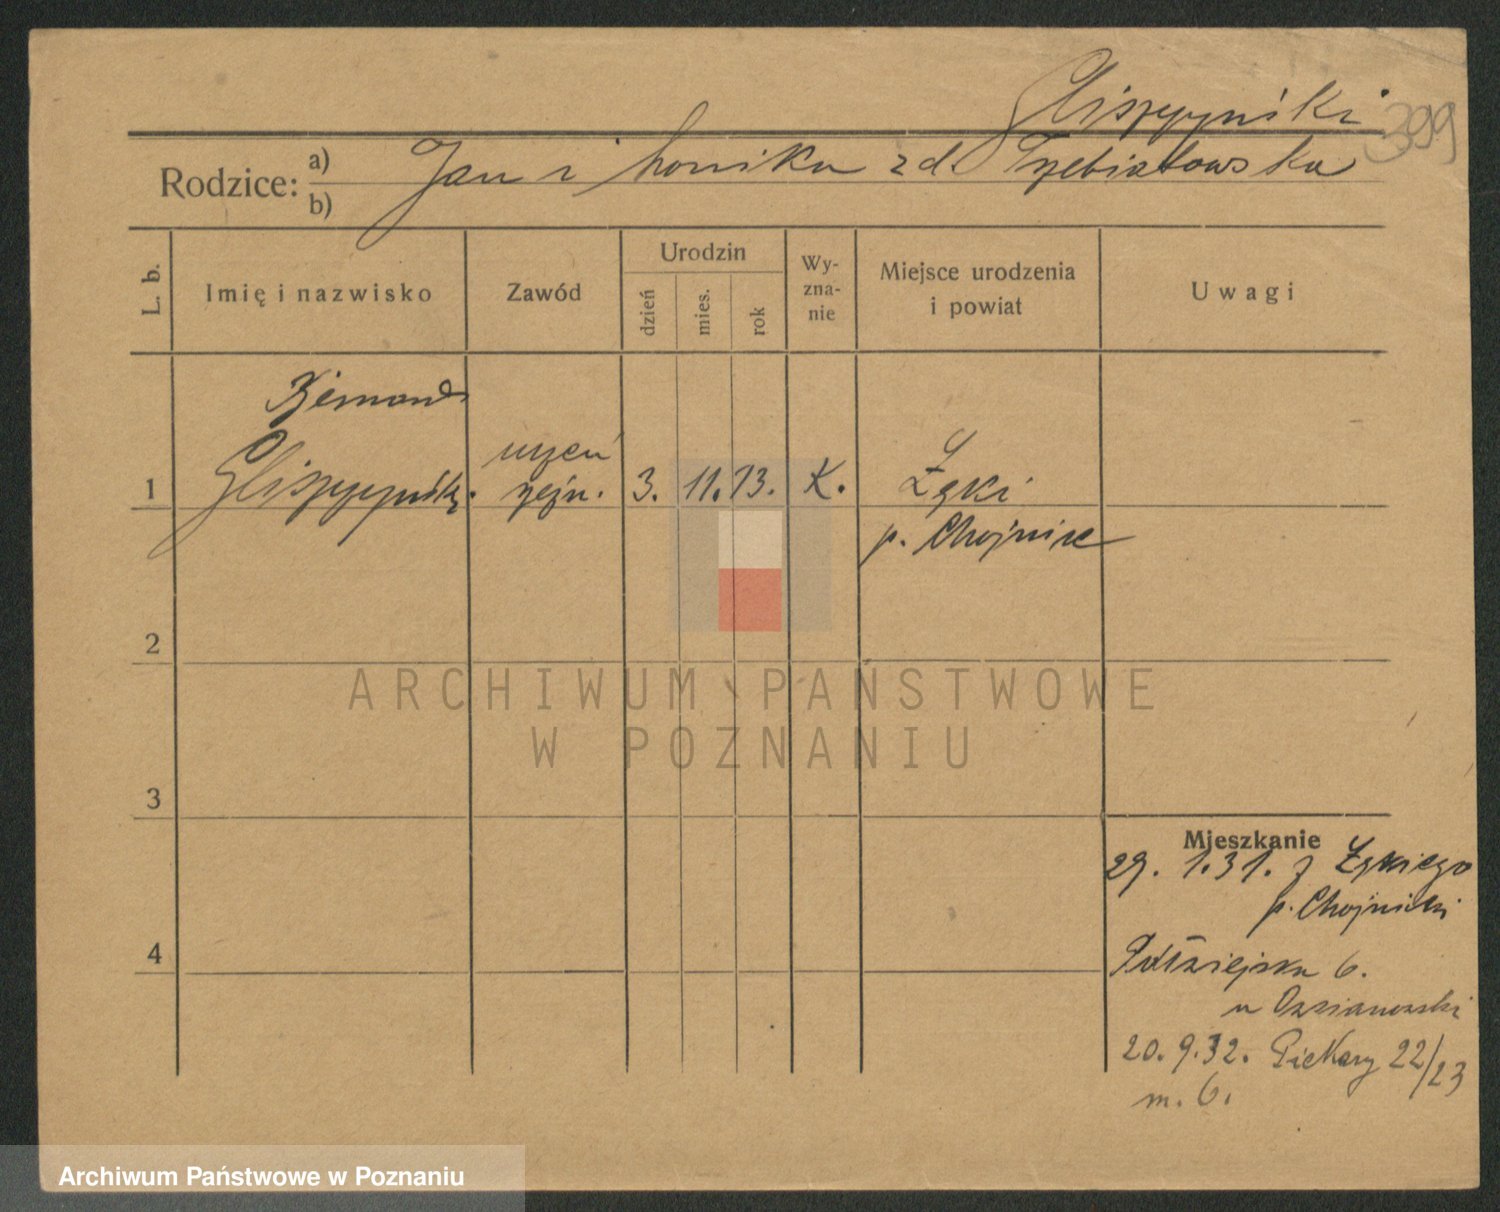 Gliszczyński 399
Rodzice: a) Jan i Monika zd. Trzebiatowska
b)
L. b. Imię i nazwisko Zawód Urodzin dzień mies. rok Wy-zna-nie Miejsce urodzenia i powiat Uwagi
Bernard
Gliszczyński uczeń
1 rzeźn. 3. 11. 13. K. Łąki
p. Chojnice
2
ARCHIWUM PAŃSTWOWE
W POZNANIU
3
Mieszkanie
29. 1. 31. z
p. Chojnicki
4
Półwiejska 6.
u
20. 9. 32. Piekary 22/23
m. 6.
Archiwum Państwowe w Poznaniu